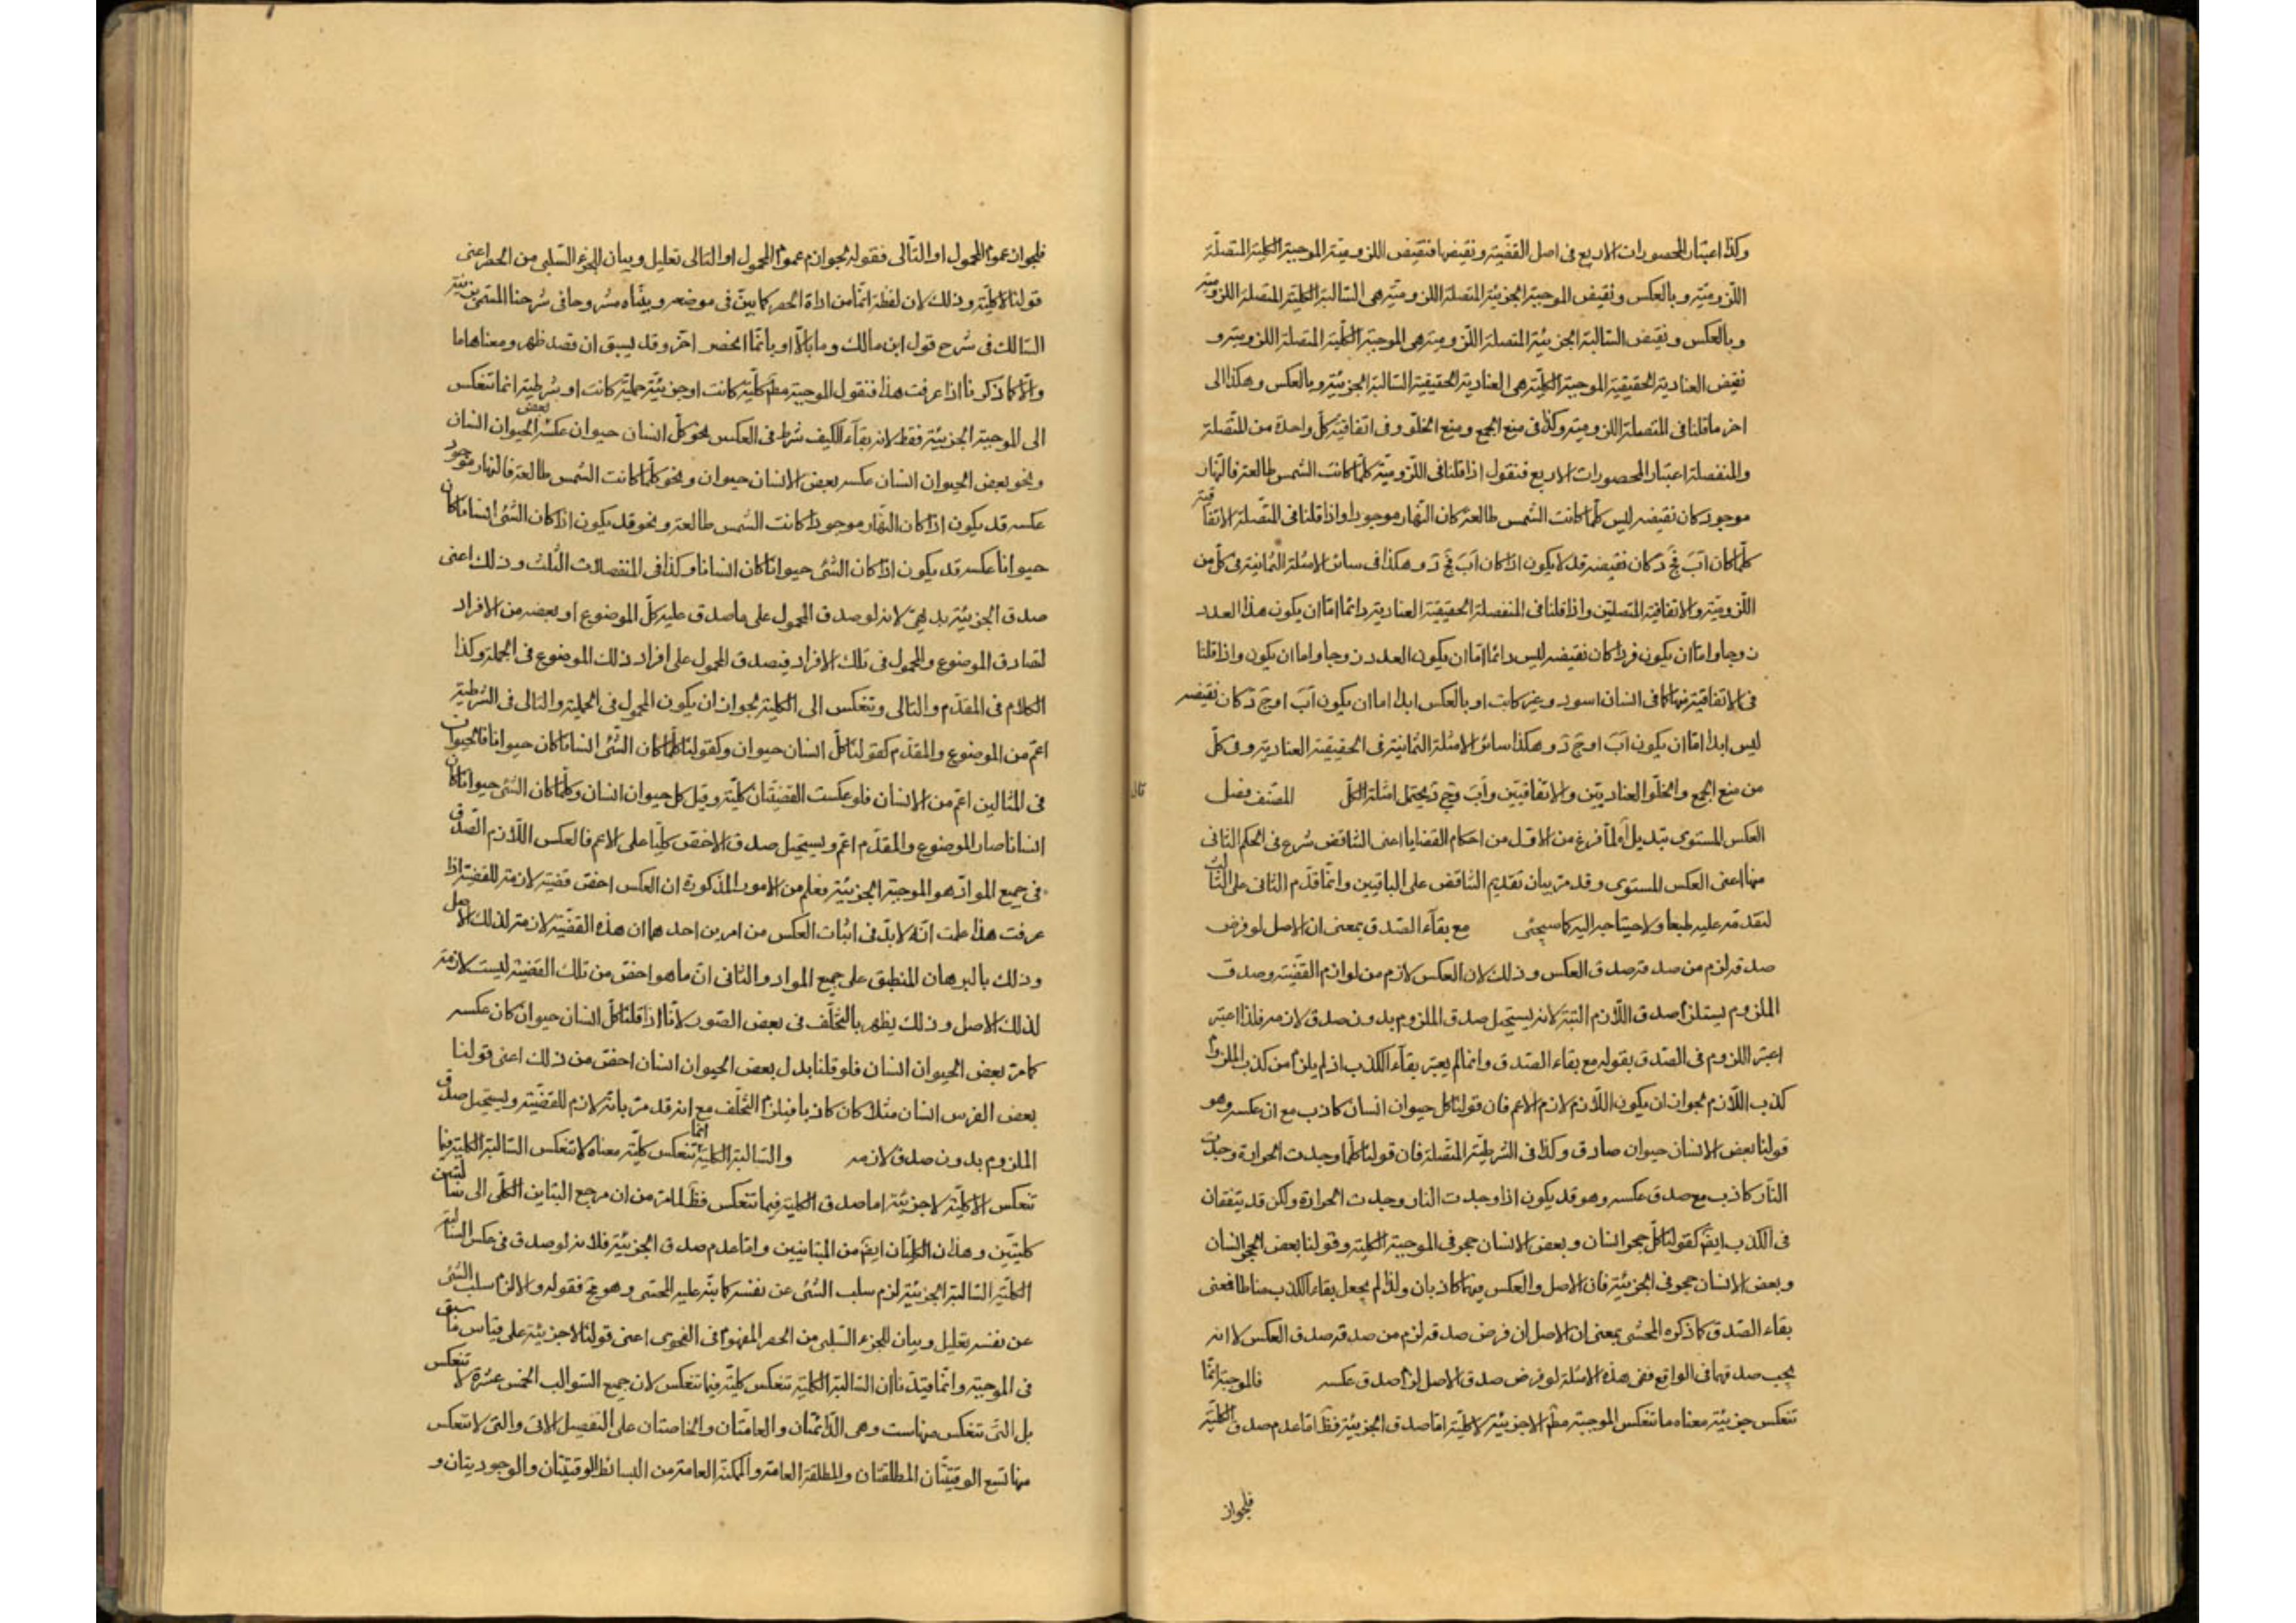 وكذا اعتبار المحصورات الاربع فى اصل القضية ونقيضها فنقيض اللزومية الموجبة الكلية المتصلة
اللزومية وبالعكس ونقيض الموجبة الجزئية المتصلة اللزومية هى السالبة الكلية المتصلة اللزومية
وبالعكس ونقيض السالبة الجزئية المتصلة اللزومية هى الموجبة الكلية المتصلة اللزومية و
نقيض العنادية الحقيقية الموجبة الكلية هى العنادية الحقيقية السالبة الجزئية وبالعكس وهكذا الى
اخر ما قلنا فى المتصلة اللزومية وكذا فى منع الجمع ومنع الخلو وفى اتفاقية كل واحدة من المتصلة
والمنفصلة اعتبار المحصورات الاربع فنقول اذا قلنا فى اللزومية كلما كانت الشمس طالعة فالنهار
موجود كان نقيضه ليس كلما كانت الشمس طالعة كان النهار موجودا واذا قلنا فى المتصلة الاتفاقية
كلما كان اَبَ فجَ دَ كان نقيضه قد لا يكون اذا كان اَبَ فجَ دَ وهكذا فى سائر الامثلة الثمانية فى كل من
اللزومية والاتفاقية المتصلتين واذا قلنا فى المنفصلة الحقيقية العنادية دائما اما ان يكون هذا العدد
زوجا واما ان يكون فردا كان نقيضه ليس دائما اما ان يكون العدد زوجا واما ان يكون واذا قلنا
فى الاتفاقية منها كما فى انسان اسود وغير كاتب او بالعكس ابدا اما ان يكون اَبَ او جَ دَ كان نقيضه
ليس ابدا اما ان يكون اَبَ او جَ دَ وهكذا سائر الامثلة الثمانية فى الحقيقية العنادية وفى كل
من منع الجمع والخلو العناديتين والاتفاقيتين واَبَ وجَ دَ يحتمل امثلة الكل المصنف فصل
قال
العكس المستوى تبديل اه لما فرغ من الاول من احكام القضايا اعنى التناقض شرع فى الحكم الثانى
منها اعنى العكس المستوى وقد مر بيان تقديم التناقض على الباقيين وانما قدم الثانى على الثالث
لتقدمه عليه طبعا ولاحتياجه اليه كما سيجئ مع بقاء الصدق بمعنى ان الاصل لو فرض
صدقه لزم من صدقه صدق العكس وذلك لان العكس لازم من لوازم القضية وصدق
الملزوم يستلزم صدق اللازم البتة لانه يستحيل صدق الملزوم بدون صدق لازمه فلذا اعتبر
اعتبر اللزوم فى الصدق بقوله مع بقاء الصدق وانما لم يعتبر بقاء الكذب اذ لم يلزم من كذب الملزوم
كذب اللازم لجواز ان يكون اللازم لازم الاعم فان قولنا كل حيوان انسان كاذب مع ان عكسه وهو
قولنا بعض الانسان حيوان صادق وكذا فى الشرطية المتصلة فان قولنا كلما وجدت الحرارة وجدت
النار كاذب مع صدق عكسه وهو قد يكون اذا وجدت النار وجدت الحرارة ولكن قد يتفقان
فى الكذب ايض كقولنا كل حجر انسان وبعض الانسان حجر فى الموجبة الكلية وقولنا بعض الحجر انسان
وبعض الانسان حجر فى الجزئية فان الاصل والعكس فيهما كاذبان ولذا لم يجعل بقاء الكذب مناطا فمعنى
بقاء الصدق كما ذكره المحشى بمعنى ان الاصل ان فرض صدقه لزم من صدقه صدق العكس لا انه
يجب صدقهما فى الواقع ففى هذه الامثلة لو فرض صدق الاصل لزم صدق عكسه فالموجبة انما
تنعكس جزئية معناه ما تنعكس الموجبة مط الا جزئية لا كلية اما صدق الجزئية فظ اما عدم صدق الكلية
فلجواز
فلجواز عموم المحمول او التالى فقوله لجواز عموم المحمول او التالى تعليل وبيان للجزء السلبى من الحصر اعنى
قولنا لا كلية وذلك لان لفظة انما من اداة الحصر كما بين فى موضعه وبيناه مشروحا فى شرحنا المسمى بزينة
السالك فى شرح قول ابن مالك وما بالا او بانما انحصر اخر وقد يسبق ان قصد ظهر ومعناها ما
والا كما ذكرنا اذا عرفت هذا فنقول الموجبة مط كلية كانت او جزئية حملية كانت او شرطية انما تنعكس
الى الموجبة الجزئية فقط لانه بقاء الكيف شرط فى العكس نحو كل انسان حيوان عكسه بعض الحيوان انسان
ونحو بعض الحيوان انسان عكسه بعض الانسان حيوان ونحو كلما كانت الشمس طالعة فالنهار موجود
عكسه قد يكون اذا كان النهار موجودا كانت الشمس طالعة ونحو قد يكون اذا كان الشئ انسانا كان
حيوانا عكسه قد يكون اذا كان الشئ حيوانا كان انسانا وكذا فى المنفصلات الثلث وذلك اعنى
صدق الجزئية بديهى لانه لو صدق المحمول على ما صدق عليه كل الموضوع او بعضه من الافراد
تصادق الموضوع والمحمول فى تلك الافراد فيصدق المحمول على افراد ذلك الموضوع فى الجملة وكذا
الكلام فى المقدم والتالى وتنعكس الى الكلية لجواز ان يكون المحمول فى الحملية والتالى فى الشرطية
اعم من الموضوع والمقدم كقولنا كل انسان حيوان وكقولنا كلما كان الشئ انسانا كان حيوانا فالحيوان
فى المثالين اعم من الانسان فلو عكست القضيتان كلية وقيل كل حيوان انسان وكلما كان الشئ حيوانا كان
انسانا صار الموضوع والمقدم اعم ويستحيل صدق الاخص كليا على الاعم فالعكس اللازم الصدق
فى جميع المواد هو الموجبة الجزئية فعلم من الامور المذكورة ان العكس اخص قضية لازمة للقضية اذا
عرفت هذا علمت انه لابد فى اثبات العكس من امرين احدهما ان هذه القضية لازمة لذلك الاصل
وذلك بالبرهان المنطبق على جميع المواد والثانى ان ما هو اخص من تلك القضية ليست لازمة
لذلك الاصل وذلك يظهر بالتخلف فى بعض الصور لانا اذا قلنا كل انسان حيوان كان عكسه
كما مر بعض الحيوان انسان فلو قلنا بدل بعض الحيوان انسان اخص من ذلك اعنى قولنا
بعض الفرس انسان مثلا كان كاذبا فيلزم التخلف مع انه قد مر بانه لازم للقضية ويستحيل صدق
الملزوم بدون صدق لازمه والسالبة الكلية انما تنعكس كلية معناه لا تنعكس السالبة الكلية فيما
تنعكس الا كلية لا جزئية اما صدق الكلية فيما تنعكس فظ لما مر من ان مرجع التباين الكلى الى سالبتين
كليتين وهذان الكليان ايض من المتباينين واما عدم صدق الجزئية فلانه لو صدق فى عكس السالبة
الكلية السالبة الجزئية لزم سلب الشئ عن نفسه كما بنه عليه المحشى وهو مح فقوله والا لزم سلب الشئ
عن نفسه تعليل وبيان للجزء السلبى من الحصر المفهوم فى الفحوى اعنى قولنا لا جزئية على قياس ما سبق
فى الموجبة وانما قيدنا ان السالبة الكلية تنعكس كلية فيما تنعكس لان جميع السوالب الخمس عشرة لا تنعكس
بل التى تنعكس منها ست وهى الدائمتان والعامتان والخاصتان على التفصيل الاتى والتى لا تنعكس
منها تسع الوقتيتان المطلقتان والمطلقة العامة والممكنة العامة من البسائط والوقتيتان والوجوديتان و